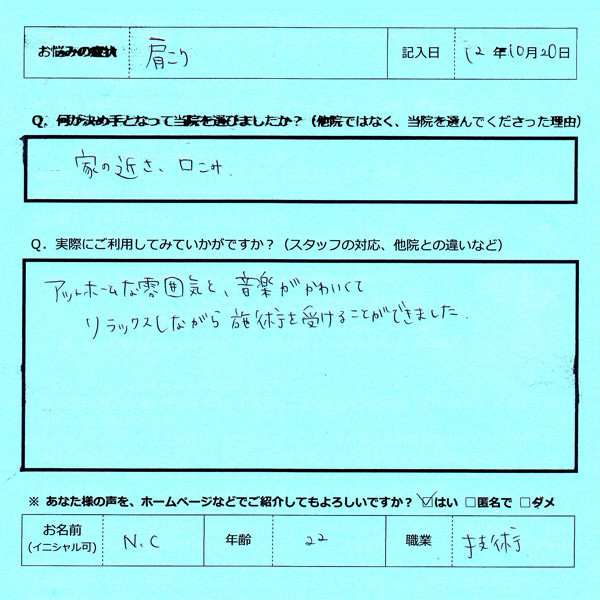 お悩みの症状 肩こり 記入日 12年10月20日
Q. 何が決め手となって当院を選びましたか？（他院ではなく、当院を選んでくださった理由）
家の近さ、口こみ.
Q. 実際にご利用してみていかがですか？（スタッフの対応、他院との違いなど）
アットホームな雰囲気と、音楽がかわいくて
リラックスしながら施術を受けることができました.
※ あなた様の声を、ホームページなどでご紹介してもよろしいですか？ ☑はい □匿名で □ダメ
お名前 N.C 年齢 22 職業 技術
(イニシャル可)